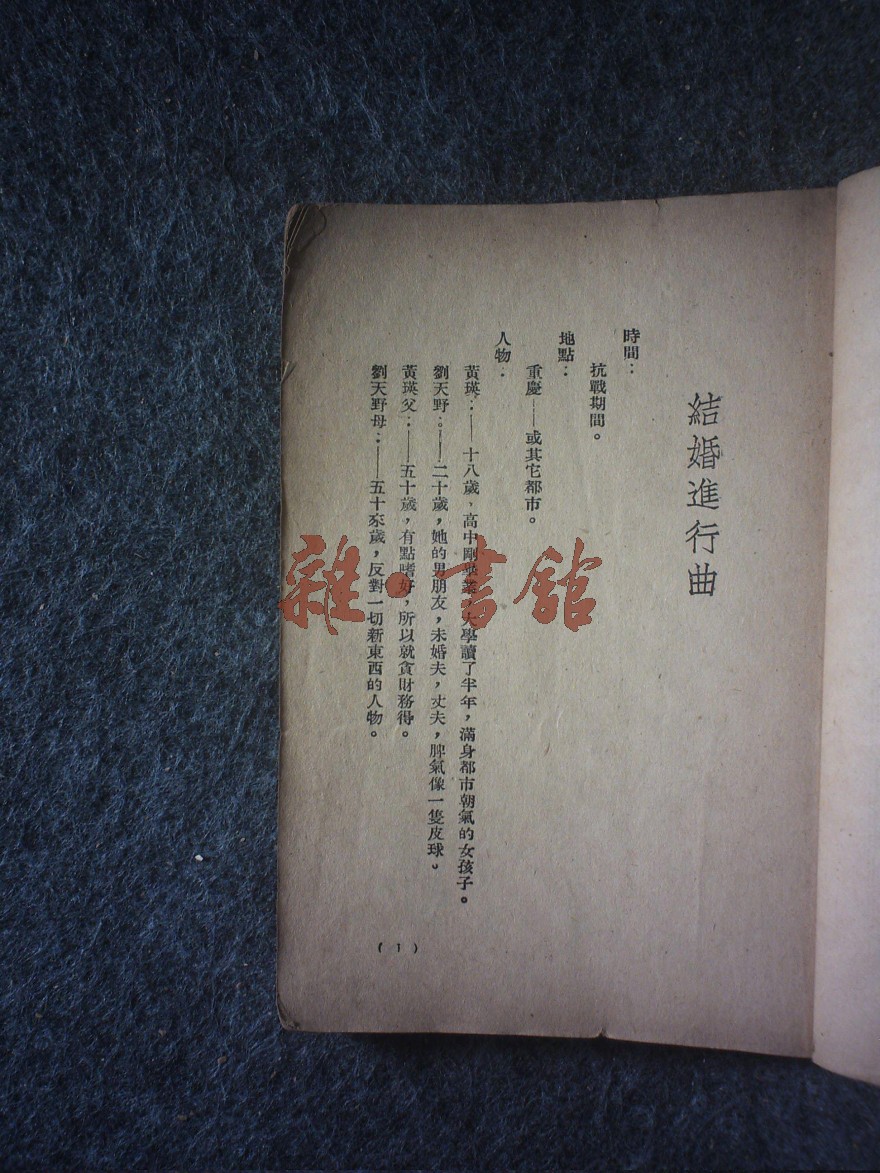 結婚進行曲
時間：
抗戰期間。
地點：
重慶——或其它都市。
人物：
黃瑛：——十八歲、高中剛畢業，大學讀了半年，滿身都市朝氣的女孩子。
劉天野：——二十歲，她的男朋友，未婚夫，丈夫，脾氣像一隻皮球。
黃瑛父：——五十歲，有點嗜好，所以就貪財務得。
劉天野母：——五十來歲，反對一切新東西的人物。
(1)
雜·書館